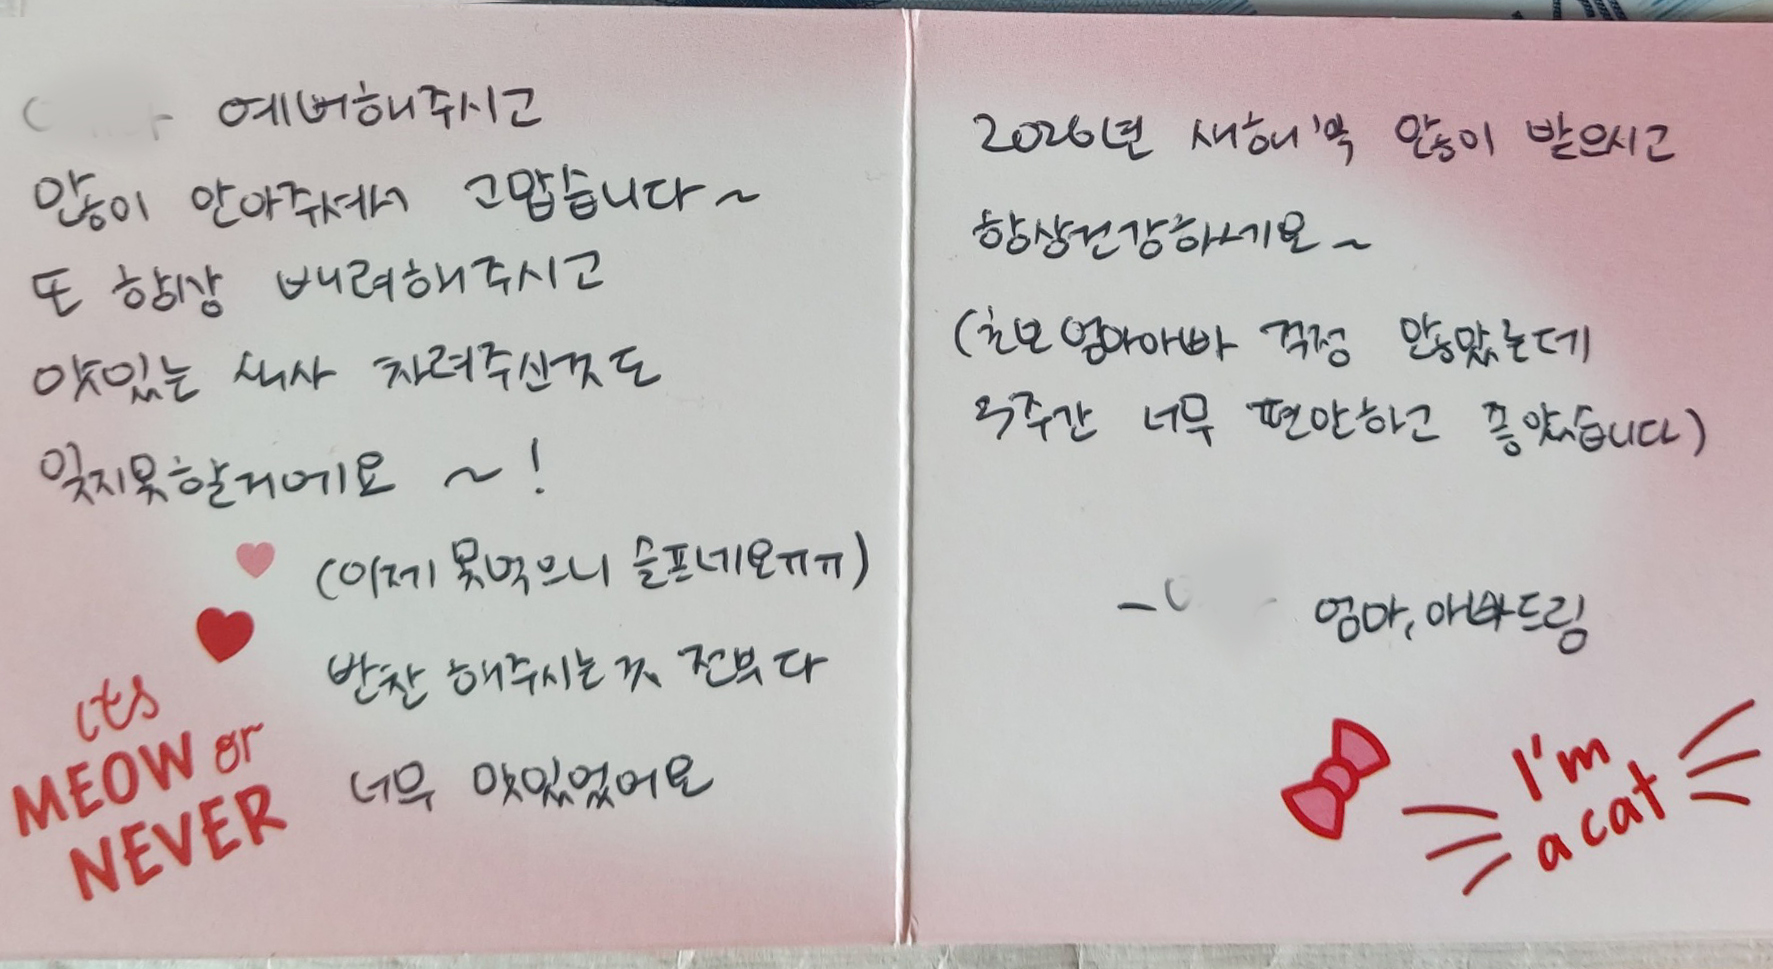 예뻐해주시고
많이 안아주셔서 고맙습니다~
또 항상 배려해주시고
맛있는 식사 차려주신것도
잊지못할거에요 ~!
(이제 못먹으니 슬프네요ㅠㅠ)
반찬 해주시는것 전부다
너무 맛있었어요
its
MEOW or
NEVER
2026년 새해 복 많이 받으시고
항상건강하세요~
(초보 엄마아빠 걱정 많았는데
주간 너무 편안하고 좋았습니다)
- 엄마, 아빠드림
I'm
a cat